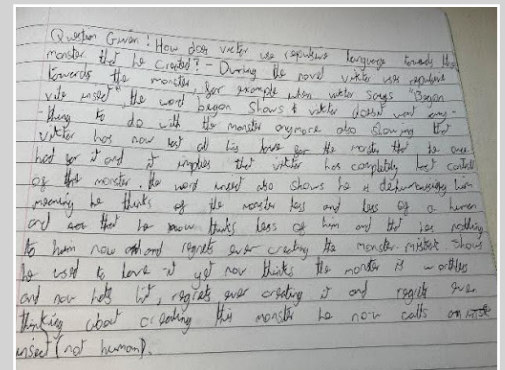 Question Given: How does victor use repulsive language towards the
monster that he created? - During the novel viktor uses repulsive
towards the monster, for example when victor says "Began
vile insect", the word began shows that viktor doesn't want any-
-thing to do with the monster anymore also showing that
viktor has now lost all his love for the monster that he once
had for it and it implies that viktor has completely lost control
of the monster. the word insect also shows he is dehumanising him
meaning he thinks of the monster less and less of a human
and now that he now thinks less of him and that hes nothing
to him now and regrets ever creating the monster. shows
he used to love it yet now thinks the monster is worthless
and now hates it, regrets ever creating it and regrets ever
thinking about creating this monster he now calls an
insect (not human).